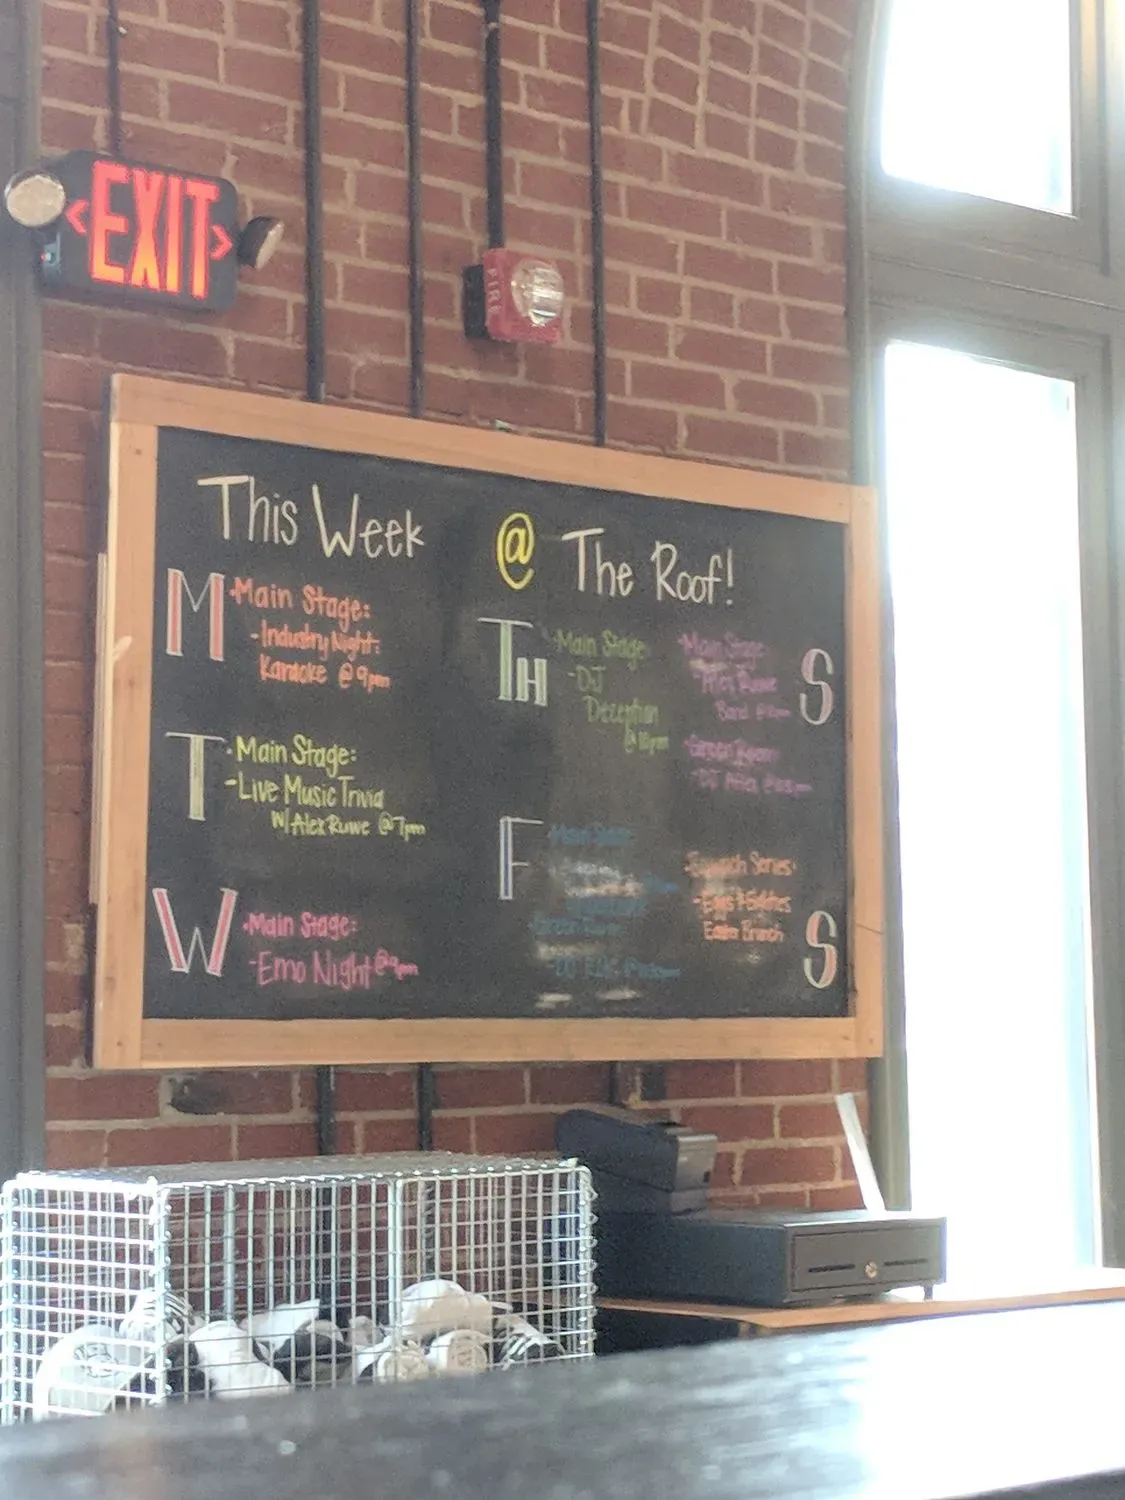 EXIT
FIRE
This Week @ The Roof!
M
•Main Stage:
-Industry Night:
Karaoke @ 9pm
T
•Main Stage:
-Live Music Trivia
w/ Alex Ruwe @ 7pm
W
•Main Stage:
-Emo Night @ 9pm
TH
•Main Stage:
-DJ
Dezeption
@ 10pm
F
•Main Stage:
•Green Room:
S
•Main Stage:
-Alex Ruwe
Band
•Green Room:
-DJ
S
•Brunch Series•
Easter Brunch